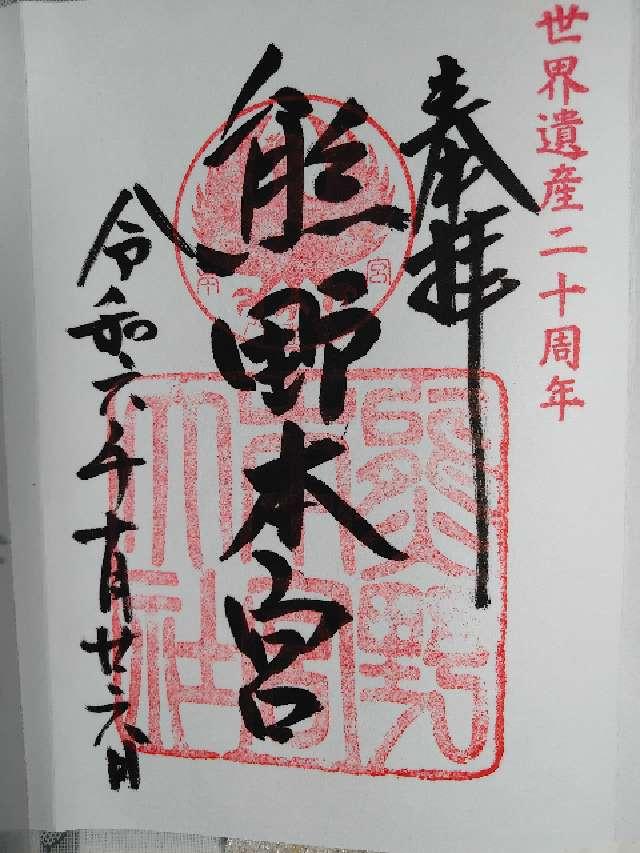 世界遺産二十周年
奉拝
熊野本宮
令和六年十月廿六日
熊野本宮大社